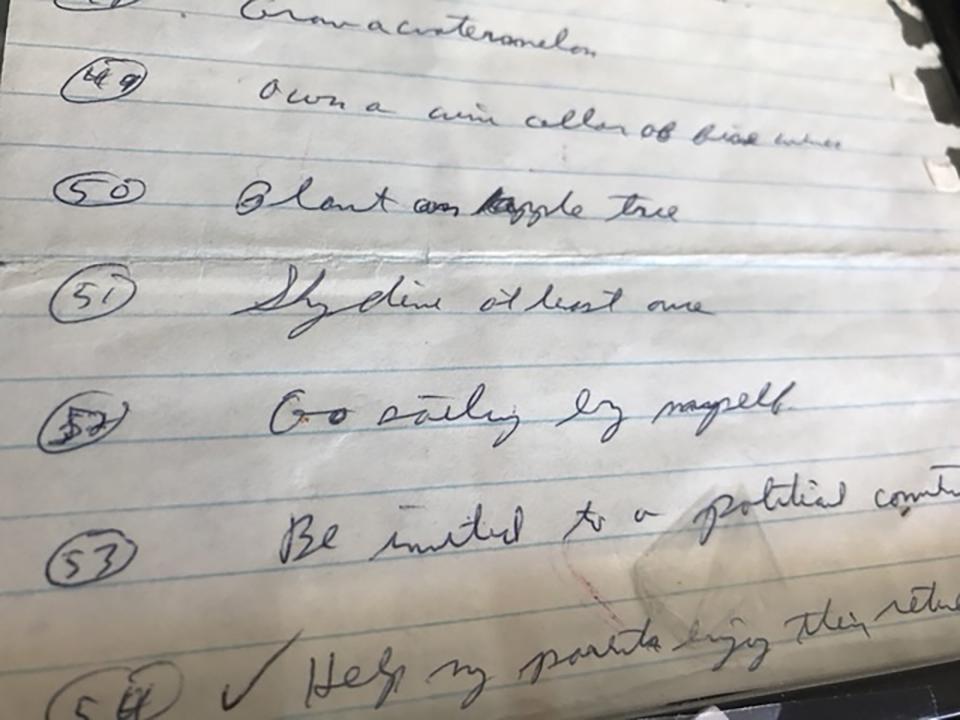 Grow a watermelon
49 Own a wine cellar of fine wines
50 Plant an apple tree
51 Sky dive at least once
52 Go sailing by myself
53 Be invited to a political
54 ✓ Help my parents enjoy their